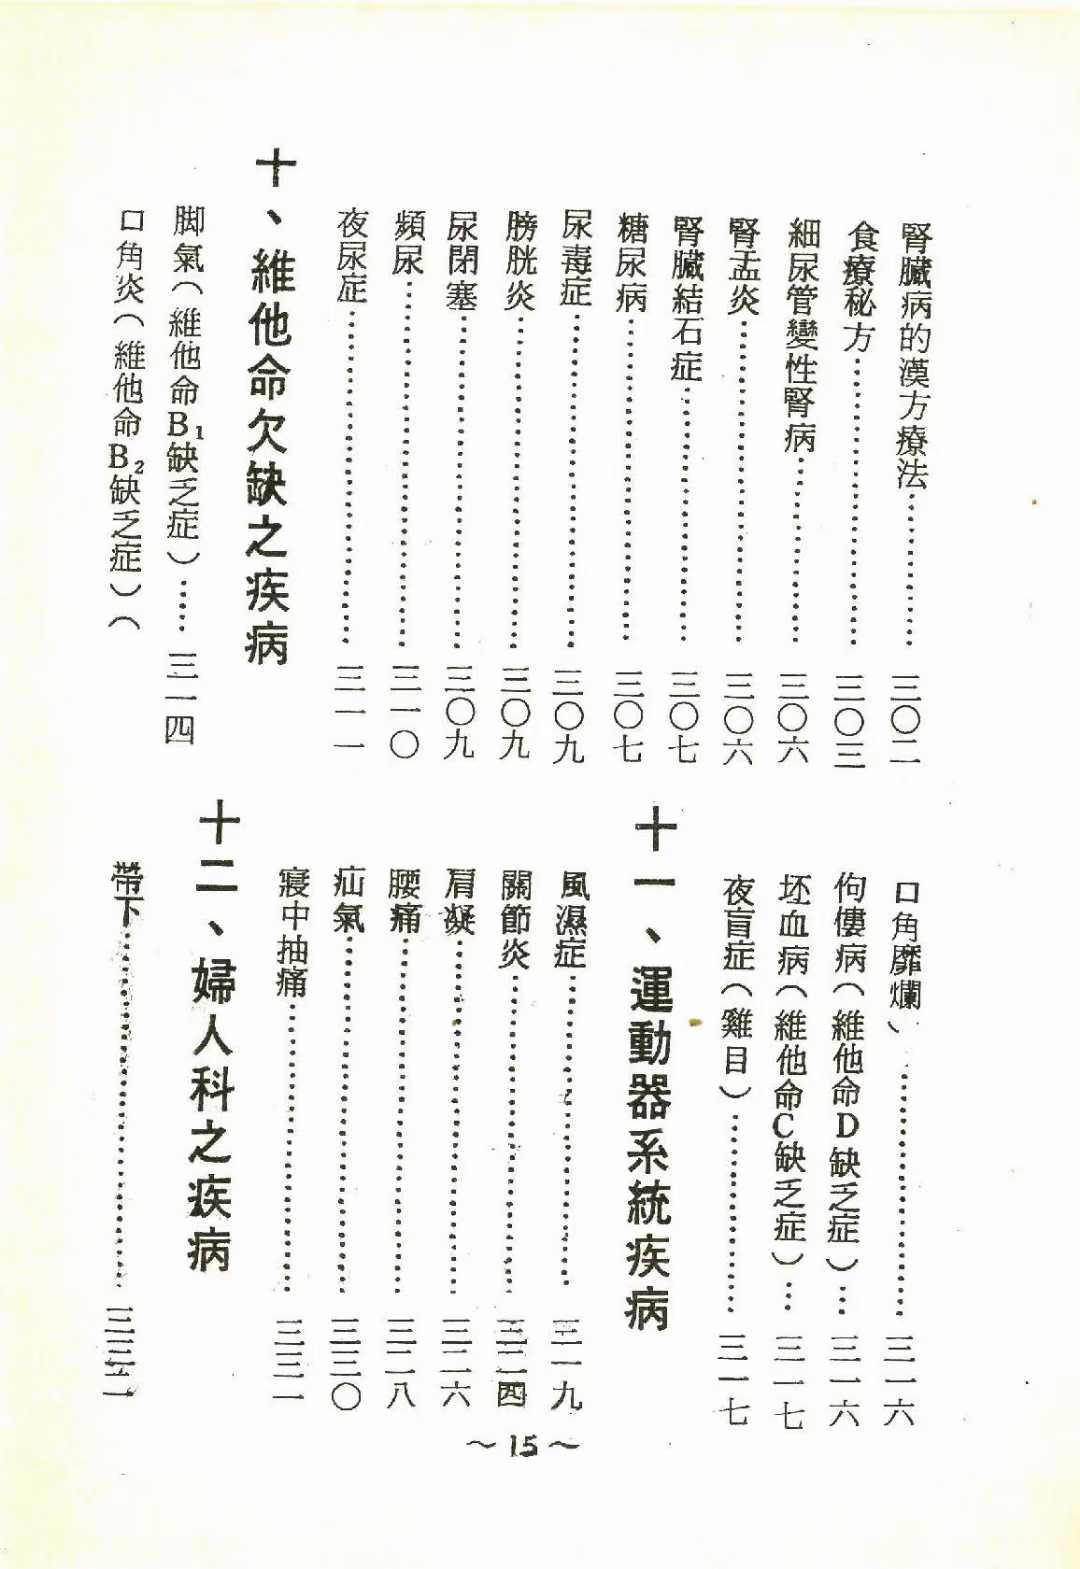 腎臟病的漢方療法…………三〇二
食療秘方…………三〇三
細尿管變性腎病…………三〇六
腎盂炎…………三〇六
腎臟結石症…………三〇七
糖尿病…………三〇七
尿毒症…………三〇九
膀胱炎…………三〇九
尿閉塞…………三〇九
頻尿…………三一〇
夜尿症…………三一一
十、維他命欠缺之疾病
脚氣(維他命B₁缺乏症)……三一四
口角炎(維他命B₂缺乏症)(
口角靡爛)…………三一六
佝僂病(維他命D缺乏症)…三一六
坯血病(維他命C缺乏症)…三一七
夜盲症(雞目)…………三一七
十一、運動器系統疾病
風濕症…………三一九
關節炎…………三二四
肩凝…………三二六
腰痛…………三二八
疝氣…………三三〇
寢中抽痛…………三三一
十二、婦人科之疾病
帶下…………
~15~